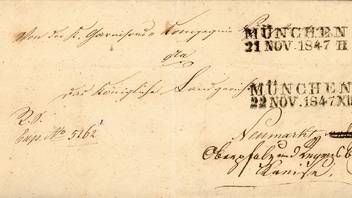 Von der K. Garnisons Compagnie
MÜNCHEN
21 NOV. 1847 II
An
das Königliche Landgericht
MÜNCHEN
22 NOV. 1847 XII
R. S.
Exp. No 5162
Neumarkt
Oberpfalz und Regensb
Kreise.